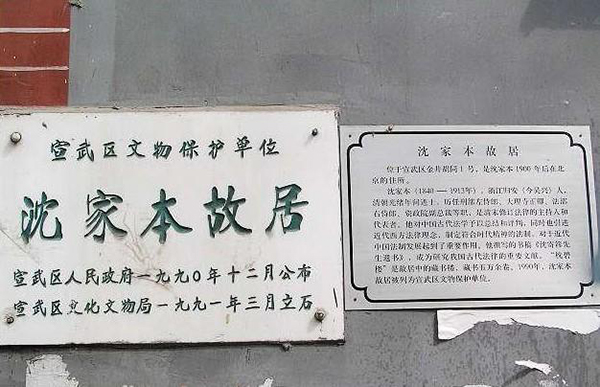 宣武区文物保护单位
沈家本故居
宣武区人民政府一九九〇年十二月公布
宣武区文化文物局一九九一年三月立石
沈家本故居
位于宣武区金井胡同1号，是沈家本1900年后在北
京的住所。
沈家本（1840—1913年），浙江归安（今吴兴）人，
清朝光绪年间进士，历任刑部左侍郎、大理寺正卿、法部
右侍郎、资政院副总裁等职，是清末修订法律的主持人和
代表者。他对中国古代法学予以总结和评判，同时也引进
近代西方法律理念，制定符合时代精神的法制，对于近代
中国法制发展起到了重要作用。他撰写的书稿《沈寄簃先
生遗书》，成为研究我国古代法律的重要文献。“枕碧
楼”是故居中的藏书楼，藏书五万余卷。1990年，沈家本
故居被列为宣武区文物保护单位。